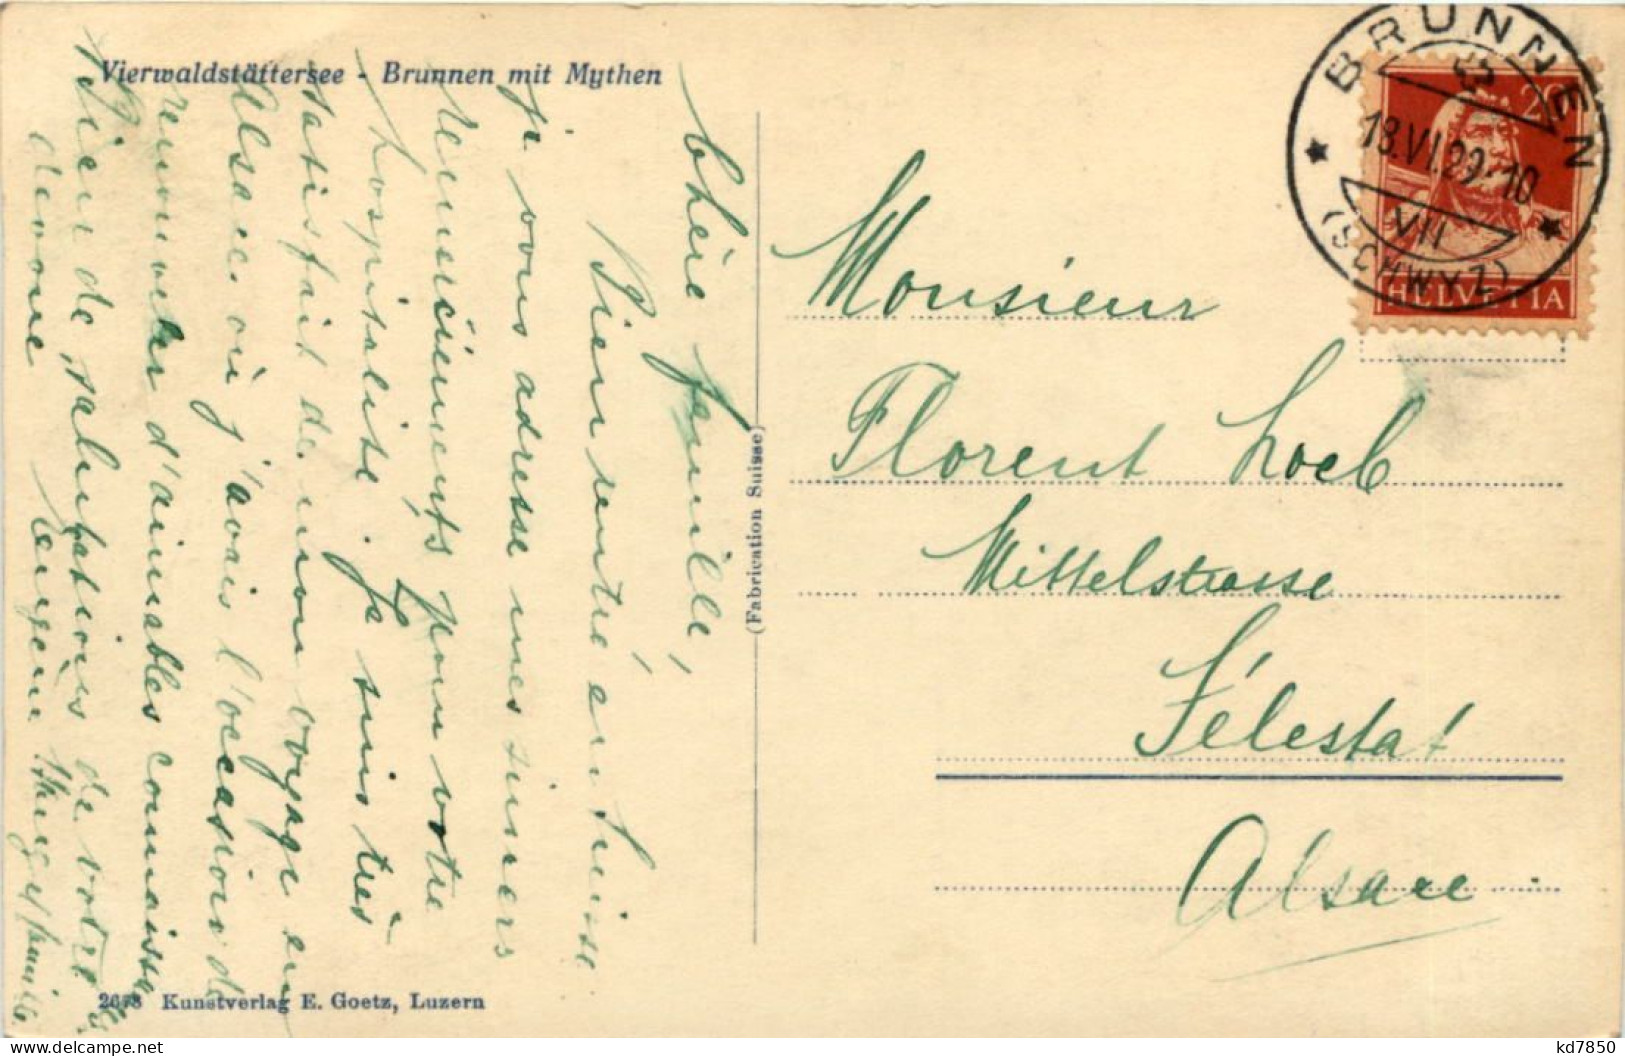 Vierwaldstättersee - Brunnen mit Mythen
Chère famille,
Bien rentré en Suisse
je vous adresse mes sincers
remerciements pour votre
hospitalité. Je suis très
satisfait de mon voyage en
Alsace où j'avais l'occasion de
renouveler d'aimables connaissa
Bien de salutations de votre
dévoué Eugène
2673 Kunstverlag E. Goetz, Luzern
(Fabrication Suisse)
BRUNNEN
13.VI.29-10
VII
(SCHWYZ)
20
HELVETIA
Monsieur
Florent Loeb
Mittelstrasse
Sélestat
Alsace
kd7850